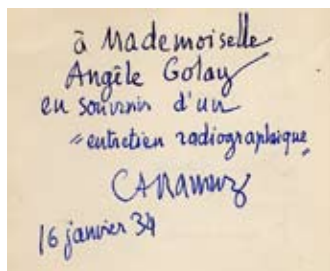 à Mademoiselle
Angèle Golay
en souvenir d'un
"entretien radiographique"
C F Ramuz
16 janvier 34